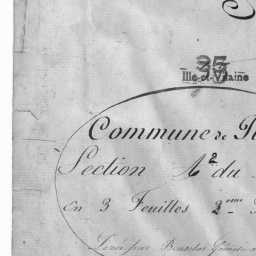 35
Ille-et-Vilaine
Commune de
Section A2 du
En 3 Feuilles 2eme
Levée par